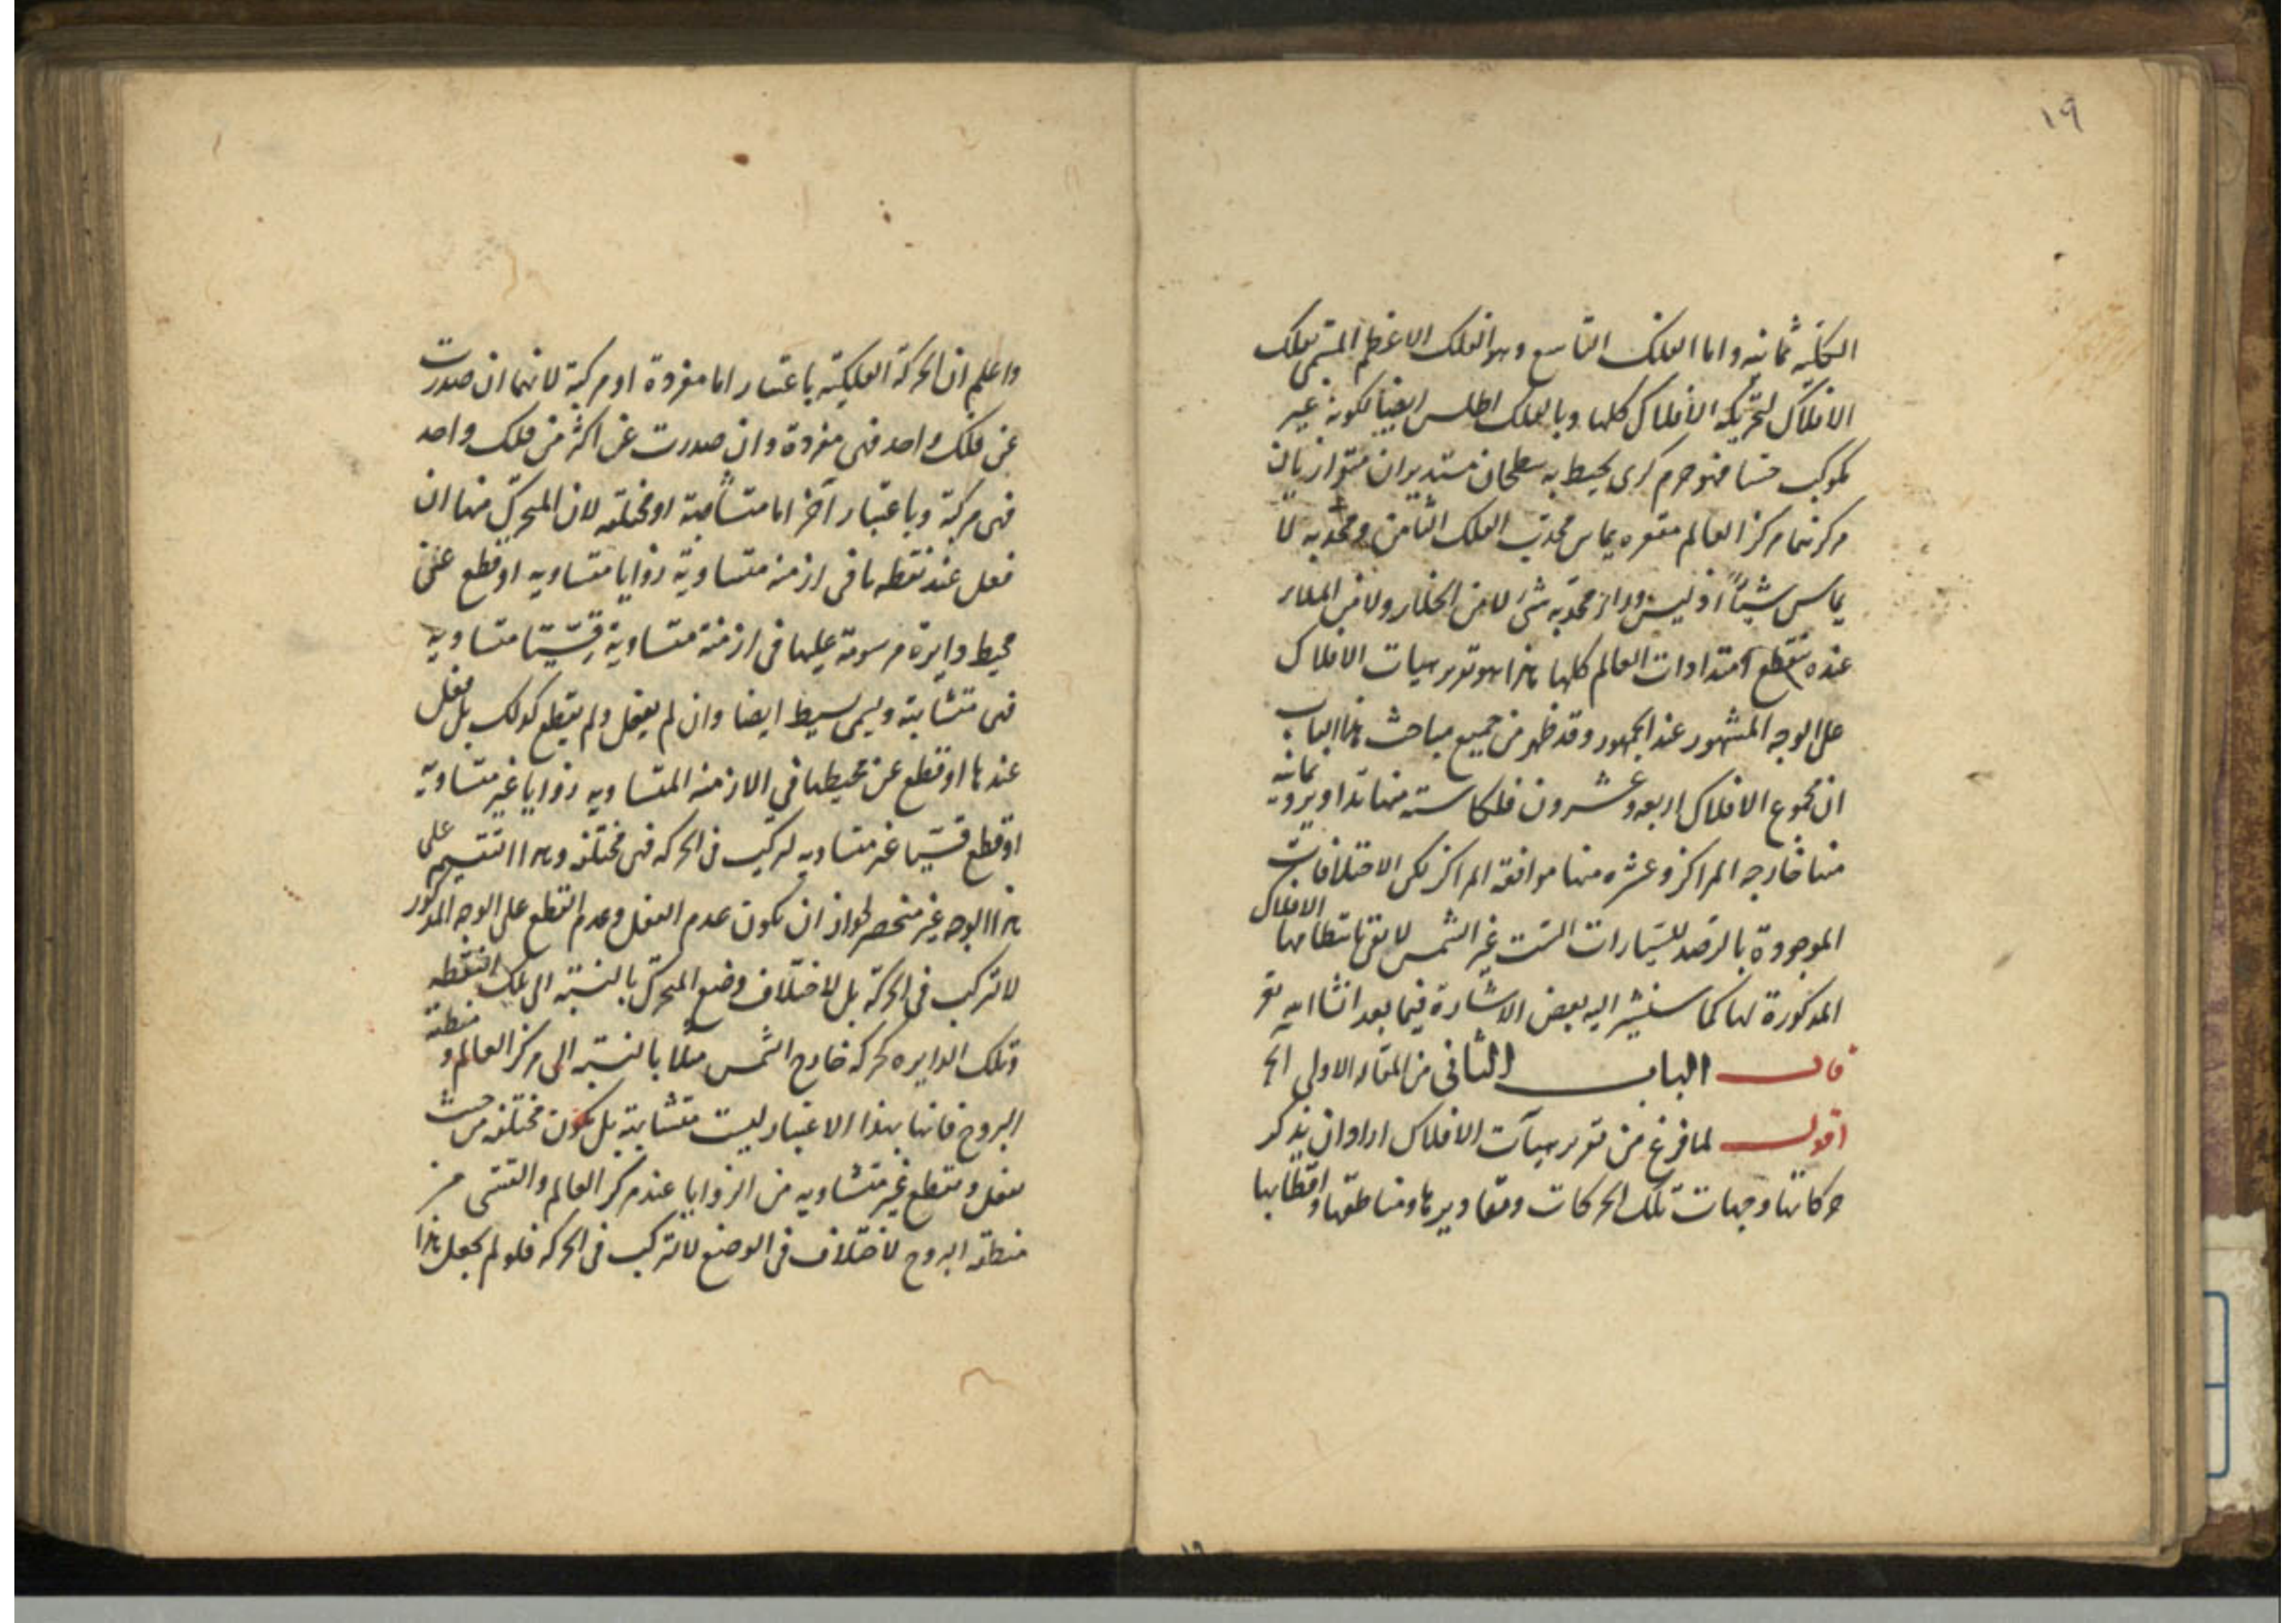 ١٩
الكلية ثمانية واما الفلك التاسع وهو الفلك الاعظم المسمى بفلك
الافلاك لتحريكه الافلاك كلها وبالفلك اطلس ايضا لكونه غير
مكوكب حسا فهو جرم كرى يحيط به سطحان مستديران متوازيان
مركزهما مركز العالم مقعره يماس محدب الفلك الثامن ومحدبه لا
يماس شيئا اذ ليس وراء محدبه شئ لا من الخلاء ولا من الملاء
عنده تنقطع امتدادات العالم كلها هذا هو تقرير هيات الافلاك
على الوجه المشهور عند الجمهور وقد ظهر من جميع مباحث هذا الباب
ان مجموع الافلاك اربعة وعشرون فلكا ستة منها تداوير وثمانية
منها خارجه المراكز وعشره منها موافقة المراكز لكن الاختلافات
الموجودة بالرصد للسيارات الست غير الشمس لا يفى بانتظامها الافلاك
المذكورة لها كما سنشير اليه بعض الاشارة فيما بعد انشا الله تع
قال الباب الثانى من المقاله الاولى الخ
اقول لما فرغ من تقرير هيآت الافلاك اراد ان يذكر
حركاتها وجهات تلك الحركات ومقاديرها ومناطقها واقطابها
واعلم ان الحركة الفلكية باعتبار اما مفردة او مركبة لانها ان صدرت
عن فلك واحد فهى مفردة وان صدرت عن اكثر من فلك واحد
فهى مركبة وباعتبار آخر اما متشابهة او مختلفه لان المتحرك منها ان
فعل عند نقطه ما فى ازمنه متساوية زوايا متساويه او قطع عن
محيط دايرة مرسومة عليها فى ازمنة متساوية قسيا متساويه
فهى متشابهة ويسمى بسيط ايضا وان لم يفعل ولم يقطع كذلك بل فعل
عندها او قطع عن محيطها في الازمنه المتساويه زوايا غير متساوية
او قطع قسيا غير متساويه لتركيب فى الحركه فهى مختلفه وهذا التقسيم على
هذا الوجه غير منحصر لجواز ان يكون عدم الفعل وعدم القطع على الوجه المذكور
لا لتركيب فى الحركة بل لاختلاف وضع المتحرك بالنسبة الى تلك النقطه
وتلك الدايره كحركه خارج الشمس مثلا بالنسبة الى مركز العالم و منطقة
البروج فانها بهذا الاعتبار ليست متشابهة بل يكون مختلفه من حيث
يفعل ويقطع غير متساويه من الزوايا عند مركز العالم والقسى من
منطقه البروج لاختلاف فى الوضع لا لتركيب فى الحركه فلو لم يجعل هذا
١٩